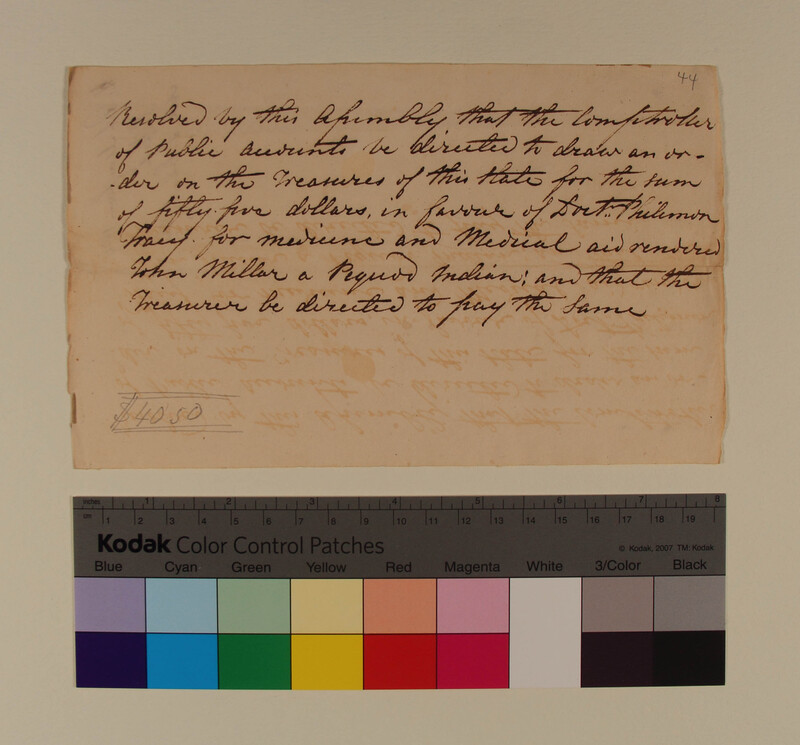 44
Resolved by this Assembly that the Comptroller
of Public accounts be directed to draw an or-
-der on the Treasures of this State for the sum
of fifty-five dollars, in favour of Doctr. Philemon
Tracy for medicine and Medical aid rendered
John Millar a Pequod Indian; and that the
Treasurer be directed to pay the same
$40.50
inches 1 2 3 4 5 6 7 8
cm 1 2 3 4 5 6 7 8 9 10 11 12 13 14 15 16 17 18 19
Kodak Color Control Patches © Kodak, 2007 TM: Kodak
Blue Cyan Green Yellow Red Magenta White 3/Color Black